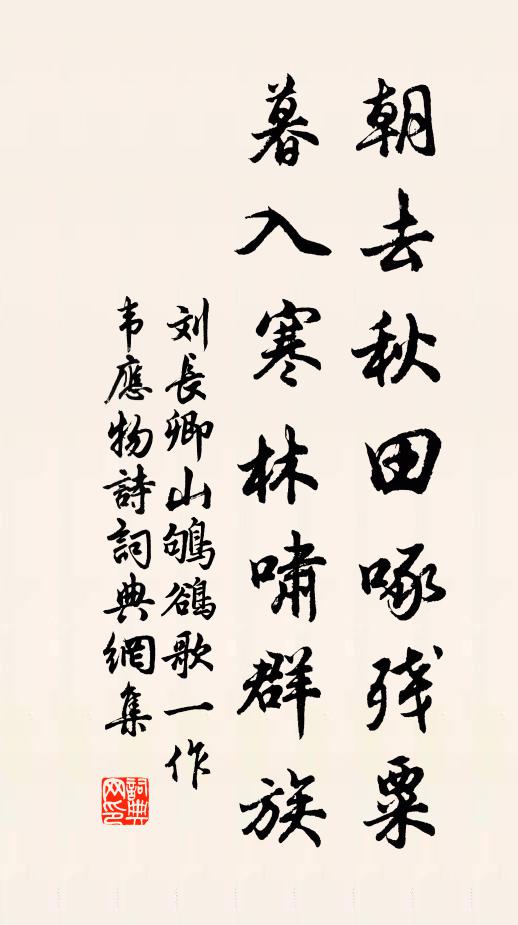 朝去秋田啄残粟
暮入寒林啸群族
刘長卿山鸲鹆歌一作
韦應物詩詞典網集
詞典网印